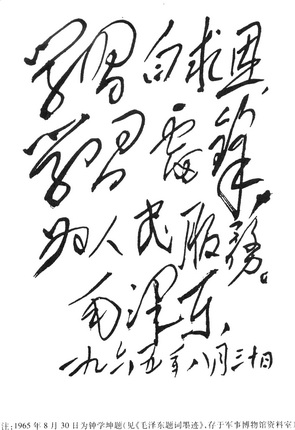 学习白求恩，
学习雷锋，
为人民服務。
毛泽东
一九六五年八月三十日
注：1965年8月30日为钟学坤题（见《毛泽东题词墨迹》，存于军事博物馆资料室）